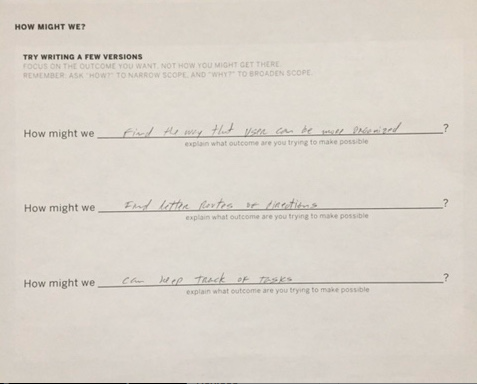 HOW MIGHT WE?
TRY WRITING A FEW VERSIONS
FOCUS ON THE OUTCOME YOU WANT, NOT HOW YOU MIGHT GET THERE.
REMEMBER: ASK "HOW?" TO NARROW SCOPE, AND "WHY?" TO BROADEN SCOPE.
How might we Find the way that User can be more Organized ?
explain what outcome are you trying to make possible
How might we Find better Routes or Directions ?
explain what outcome are you trying to make possible
How might we can keep Track of Tasks ?
explain what outcome are you trying to make possible